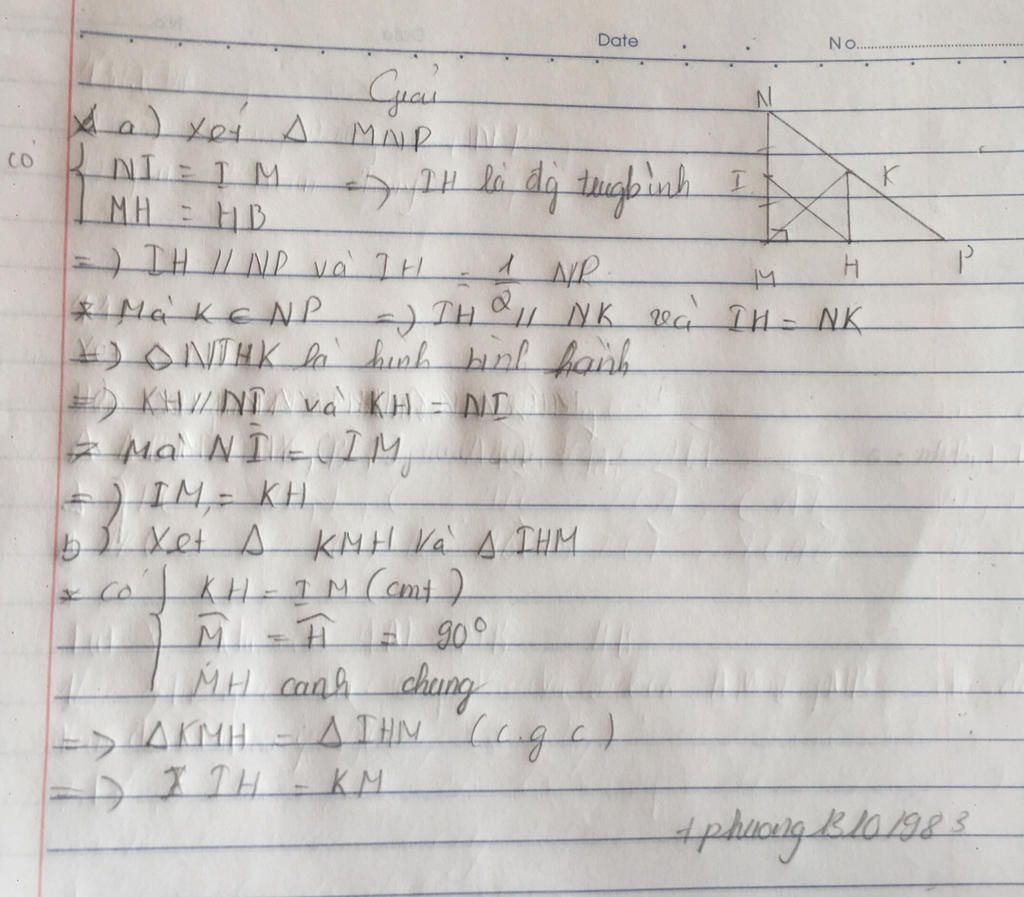 Date No
Giải
a) Xét Δ MNP
có
NI = IM => IH là đg trugbình
MH = HB
=) IH // NP và IH = 1/2 NP
* Mà K ∈ NP =) IH // NK và IH = NK
=) ◇ NIHK là hình bình hành
=) KH // NI và KH = NI
= Mà NI = IM
=) IM = KH
b) Xét Δ KMH và Δ IHM
* Có KH = IM (cmt)
M̂ = Ĥ = 90°
MH cạnh chung
=> ΔKMH = ΔIHM (c.g c)
=> IH = KM
N
I
K
M H P
+phuong13101983